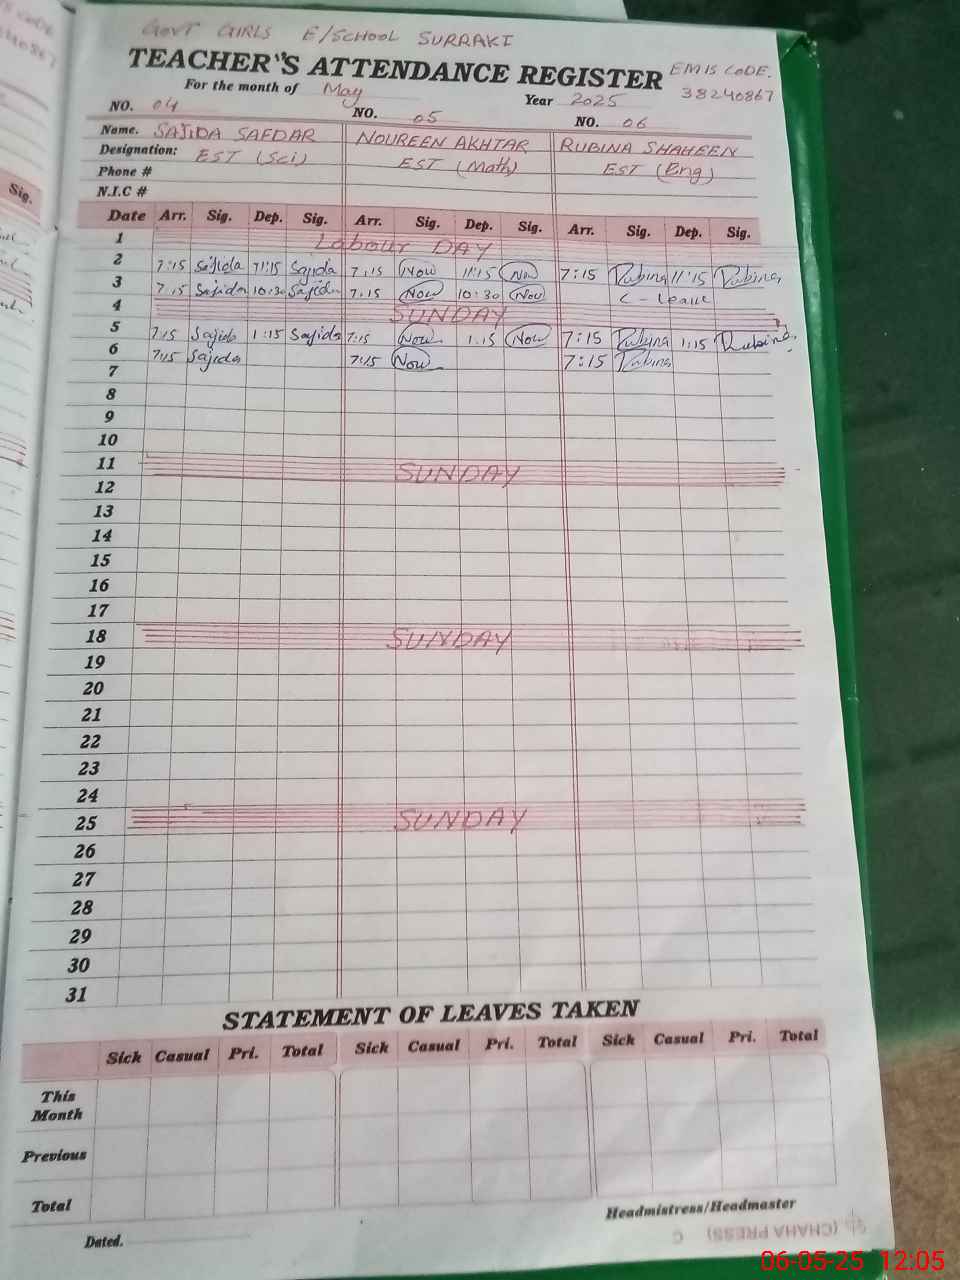 GOVT GIRLS E/SCHOOL SURRAKI
TEACHER'S ATTENDANCE REGISTER EMIS CODE.
38240867
For the month of May Year 2025
NO. 04 NO. 05 NO. 06
Name. SAJIDA SAFDAR NOUREEN AKHTAR RUBINA SHAHEEN
Designation: EST (Sci) EST (Math) EST (Eng)
Phone #
N.I.C #
Date Arr. Sig. Dep. Sig. Arr. Sig. Dep. Sig. Arr. Sig. Dep. Sig.
1 Labour DAY
2 7:15 Sajida 11:15 Sajida 7:15 Now 11:15 Now 7:15 Rubina 11:15 Rubina
3 7:15 Sajida 10:30 Sajida 7:15 Now 10:30 Now C-Leave
4 SUNDAY
5 7:15 Sajida 1:15 Sajida 7:15 Now 1:15 Now 7:15 Rubina 1:15 Rubina
6 7:15 Sajida 7:15 Now 7:15 Rubina
7
8
9
10
11 SUNDAY
12
13
14
15
16
17
18 SUNDAY
19
20
21
22
23
24
25 SUNDAY
26
27
28
29
30
31
STATEMENT OF LEAVES TAKEN
Sick Casual Pri. Total Sick Casual Pri. Total Sick Casual Pri. Total
This Month
Previous
Total
Headmistress/Headmaster
Dated.
(CHAHA PRESS)
06-05-25 12:05